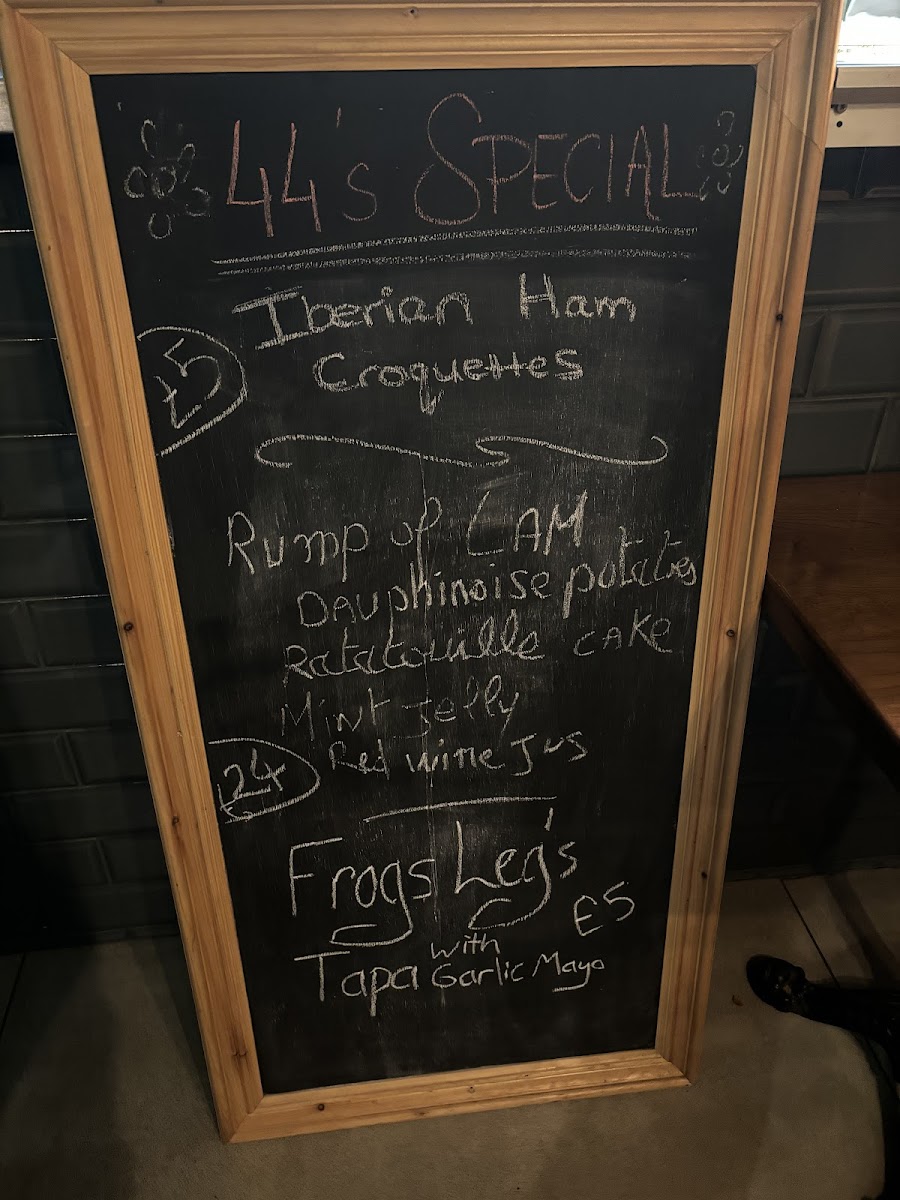 44's SPECIAL
Iberian Ham
£5
Croquettes
Rump of LAM
DAuphinoise potatoes
Ratatouille CAKE
Mint Jelly
24
Red wine Jus
Frogs Leg's
£5
Tapa with
Garlic Mayo